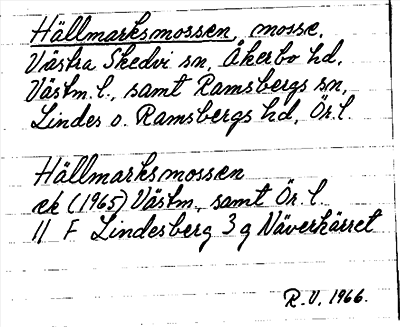 Hällmarksmossen, mosse,
Västra Skedvi sn, Åkerbo hd,
Västm. l., samt Ramsbergs sn,
Lindes o. Ramsbergs hd, Ör. l.
Hällmarksmossen
ek (1965) Västm., samt Ör. l.
11 F Lindesberg 3 g Näverkärret
R.V. 1966.